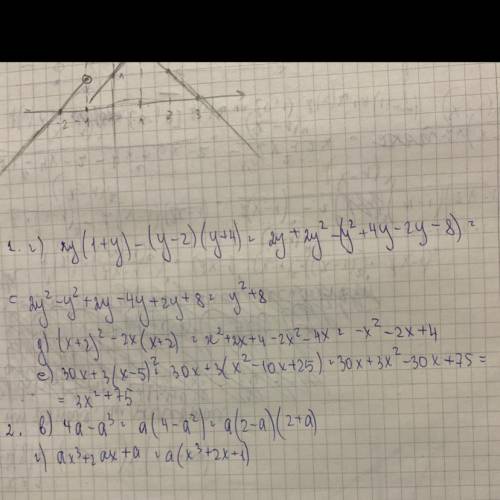 -2 -1 1 2 3
1. г) 2y(1+y)-(y-2)(y+4)= 2y+2y²-(y²+4y-2y-8)=
= 2y²-y²+2y-4y+2y+8= y²+8
д) (x+2)²-2x(x+2) = x²+2x+4-2x²-4x= -x²-2x+4
е) 30x+3(x-5)²= 30x+3(x²-10x+25)=30x+3x²-30x+75=
= 3x²+75
2. в) 4a-a³= a(4-a²)= a(2-a)(2+a)
г) ax³+2ax+a =a(x³+2x+1)